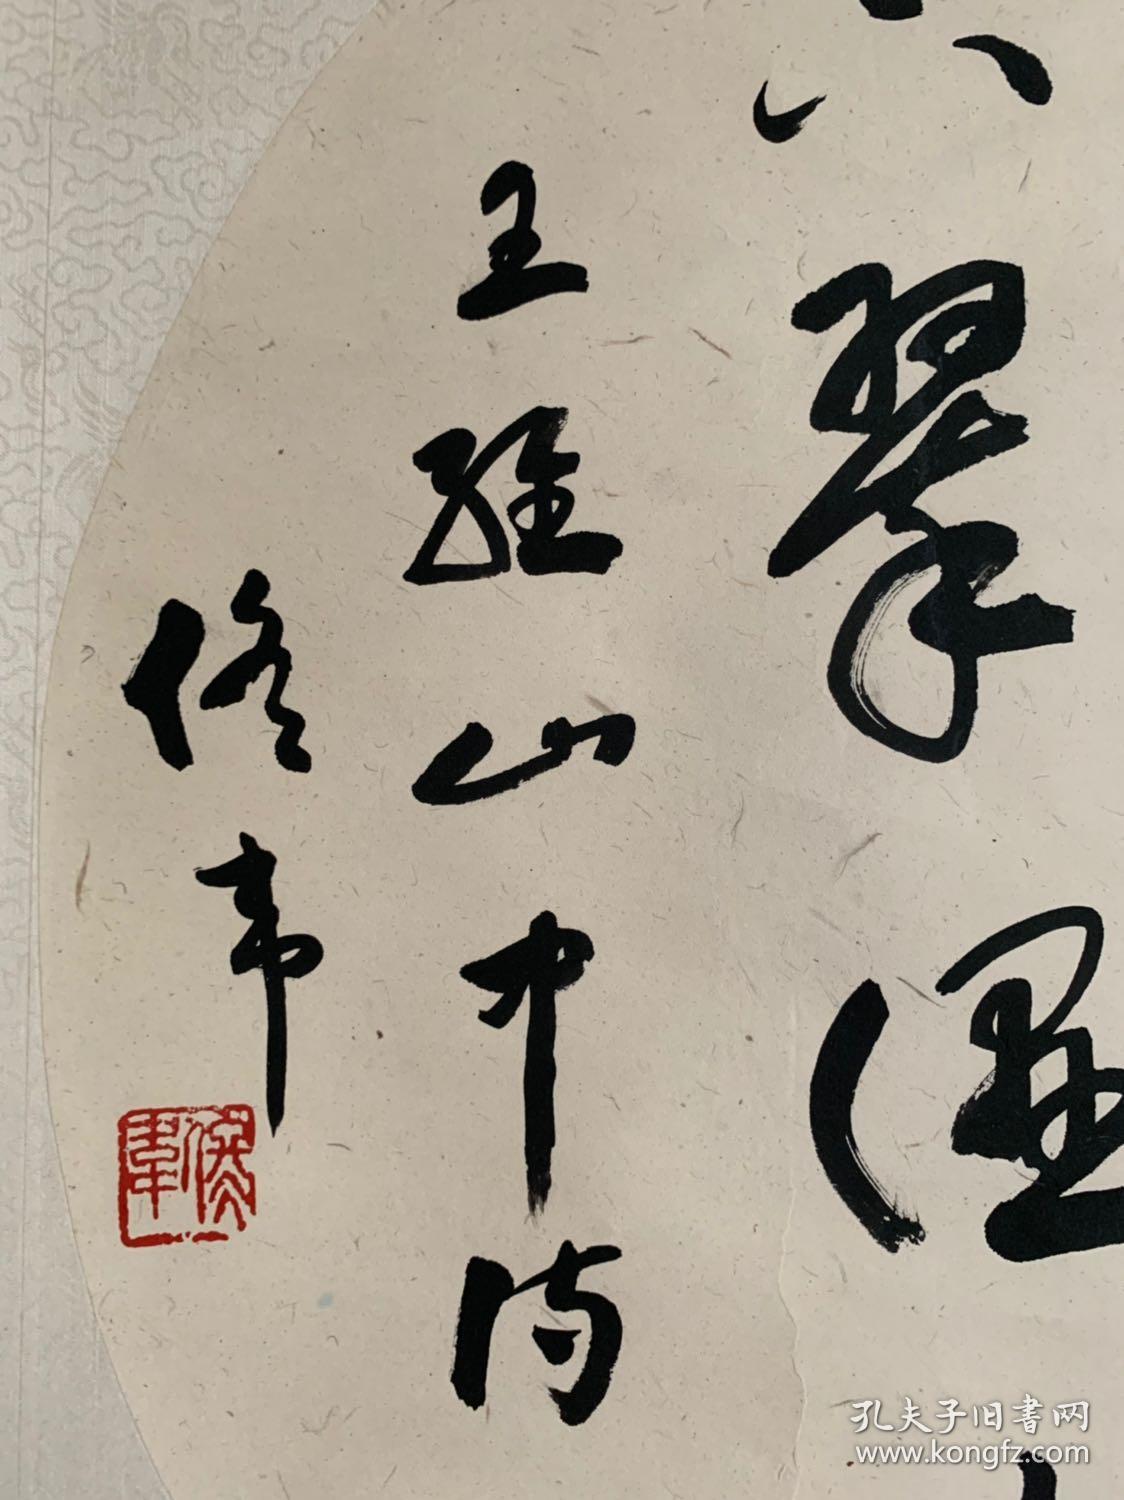 空翠湿
王维山中诗
侯韦
侯韋
孔夫子旧書网
www.kongfz.com